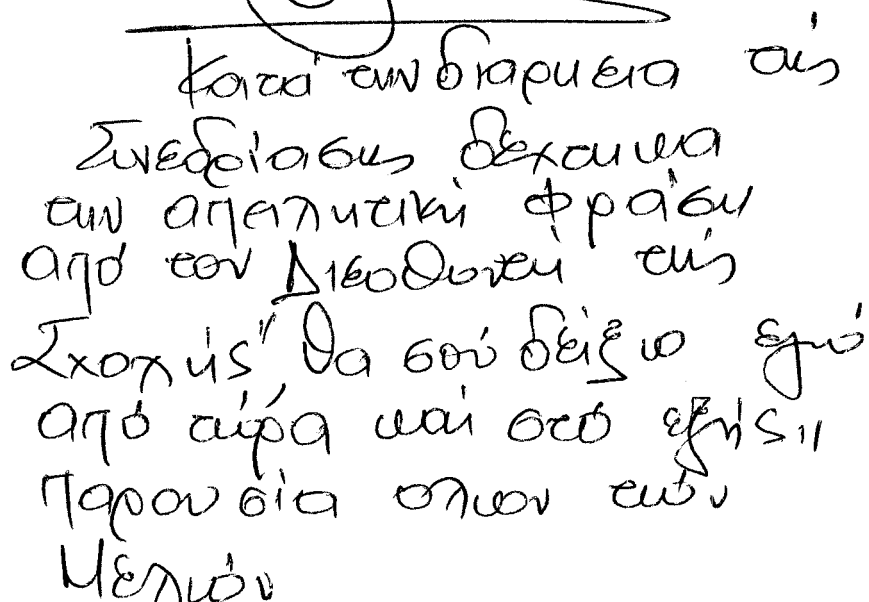 Κατά την διάρκεια τής
Συνεδρίασης δέχτηκα
την απειλητική φράση
από τον Διευθυντή τής
Σχολής "θα σού δείξω εγώ
από τώρα και στό εξής"
παρουσία ολων τών
Μελών